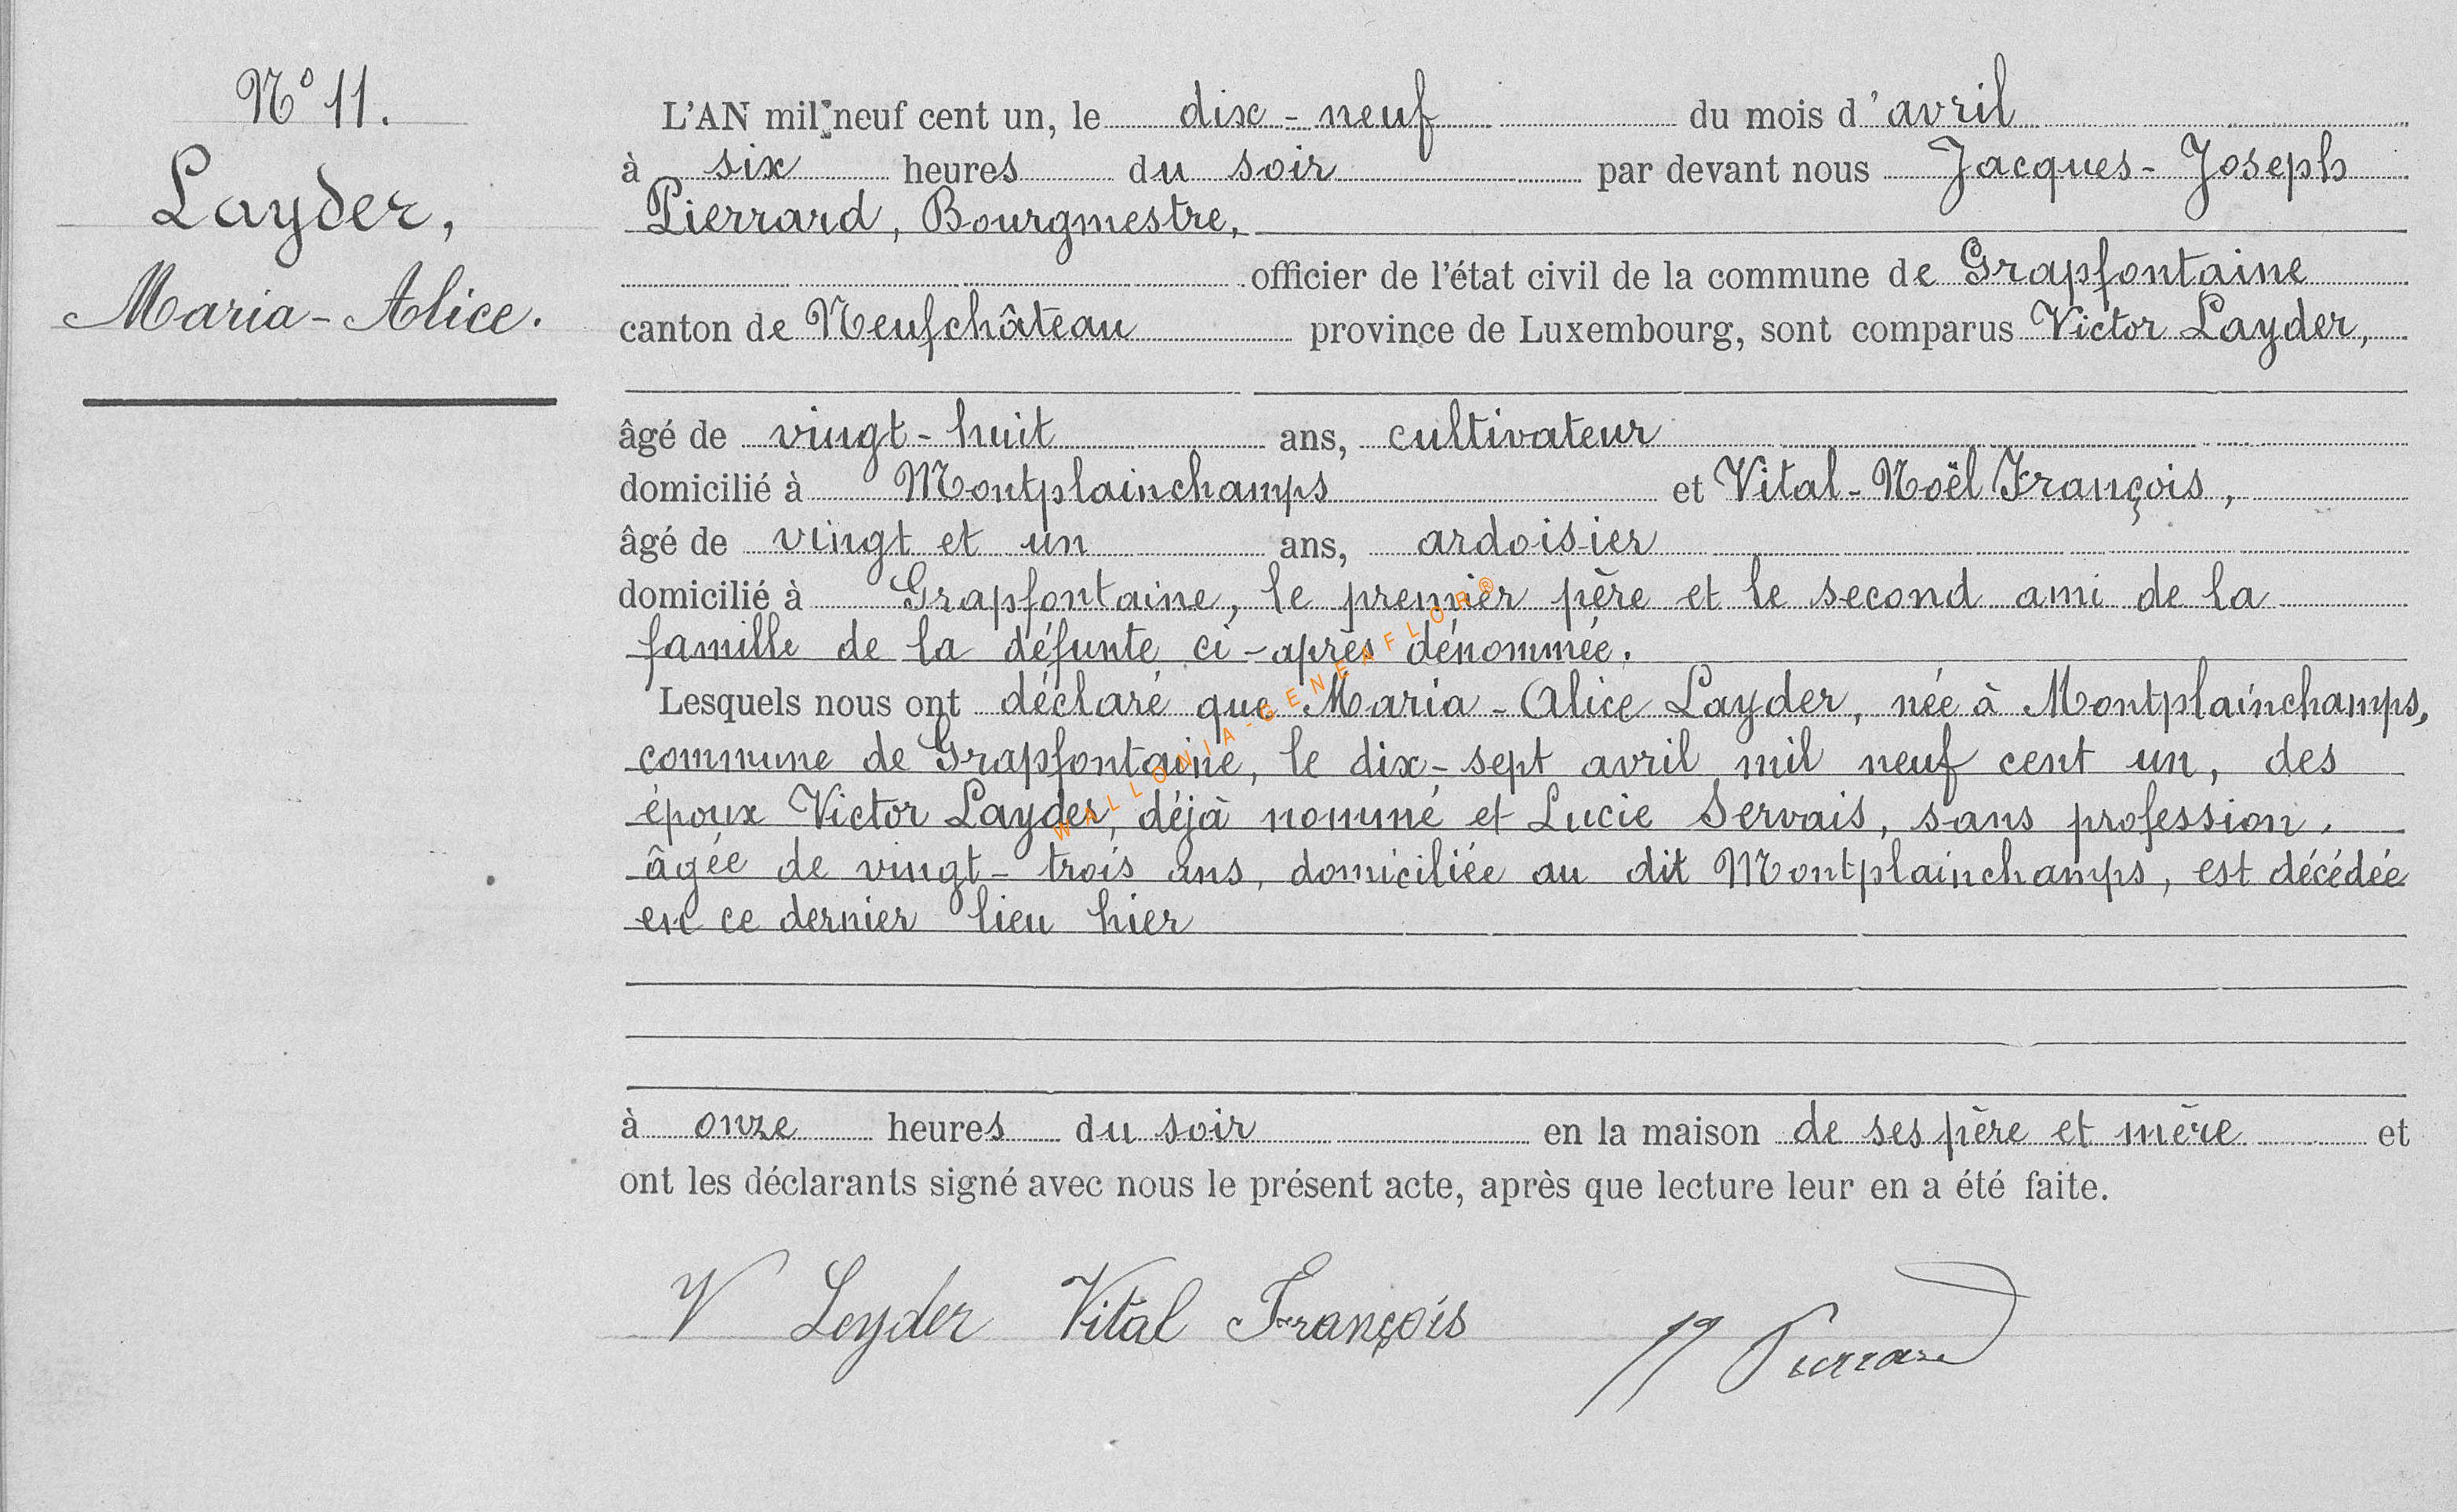 N° 11.
Layder,
Maria-Alice.
L'AN mil neuf cent un, le dix-neuf du mois d'avril
à six heures du soir par devant nous Jacques-Joseph
Pierrard, Bourgmestre,
officier de l'état civil de la commune de Grapfontaine
canton de Neufchâteau province de Luxembourg, sont comparus Victor Layder,
âgé de vingt-huit ans, cultivateur
domicilié à Montplainchamps et Vital-Noël François,
âgé de vingt et un ans, ardoisier
domicilié à Grapfontaine, le premier père et le second ami de la
famille de la défunte ci-après dénommée.
Lesquels nous ont déclaré que Maria-Alice Layder, née à Montplainchamps,
commune de Grapfontaine, le dix-sept avril mil neuf cent un, des
époux Victor Layder, déjà nommé et Lucie Servais, sans profession,
âgée de vingt-trois ans, domiciliée au dit Montplainchamps, est décédée
en ce dernier lieu hier
à onze heures du soir en la maison de ses père et mère et
ont les déclarants signé avec nous le présent acte, après que lecture leur en a été faite.
V Leyder Vital François JJ Pierrard
WALLONIA-GENEAFLOR®